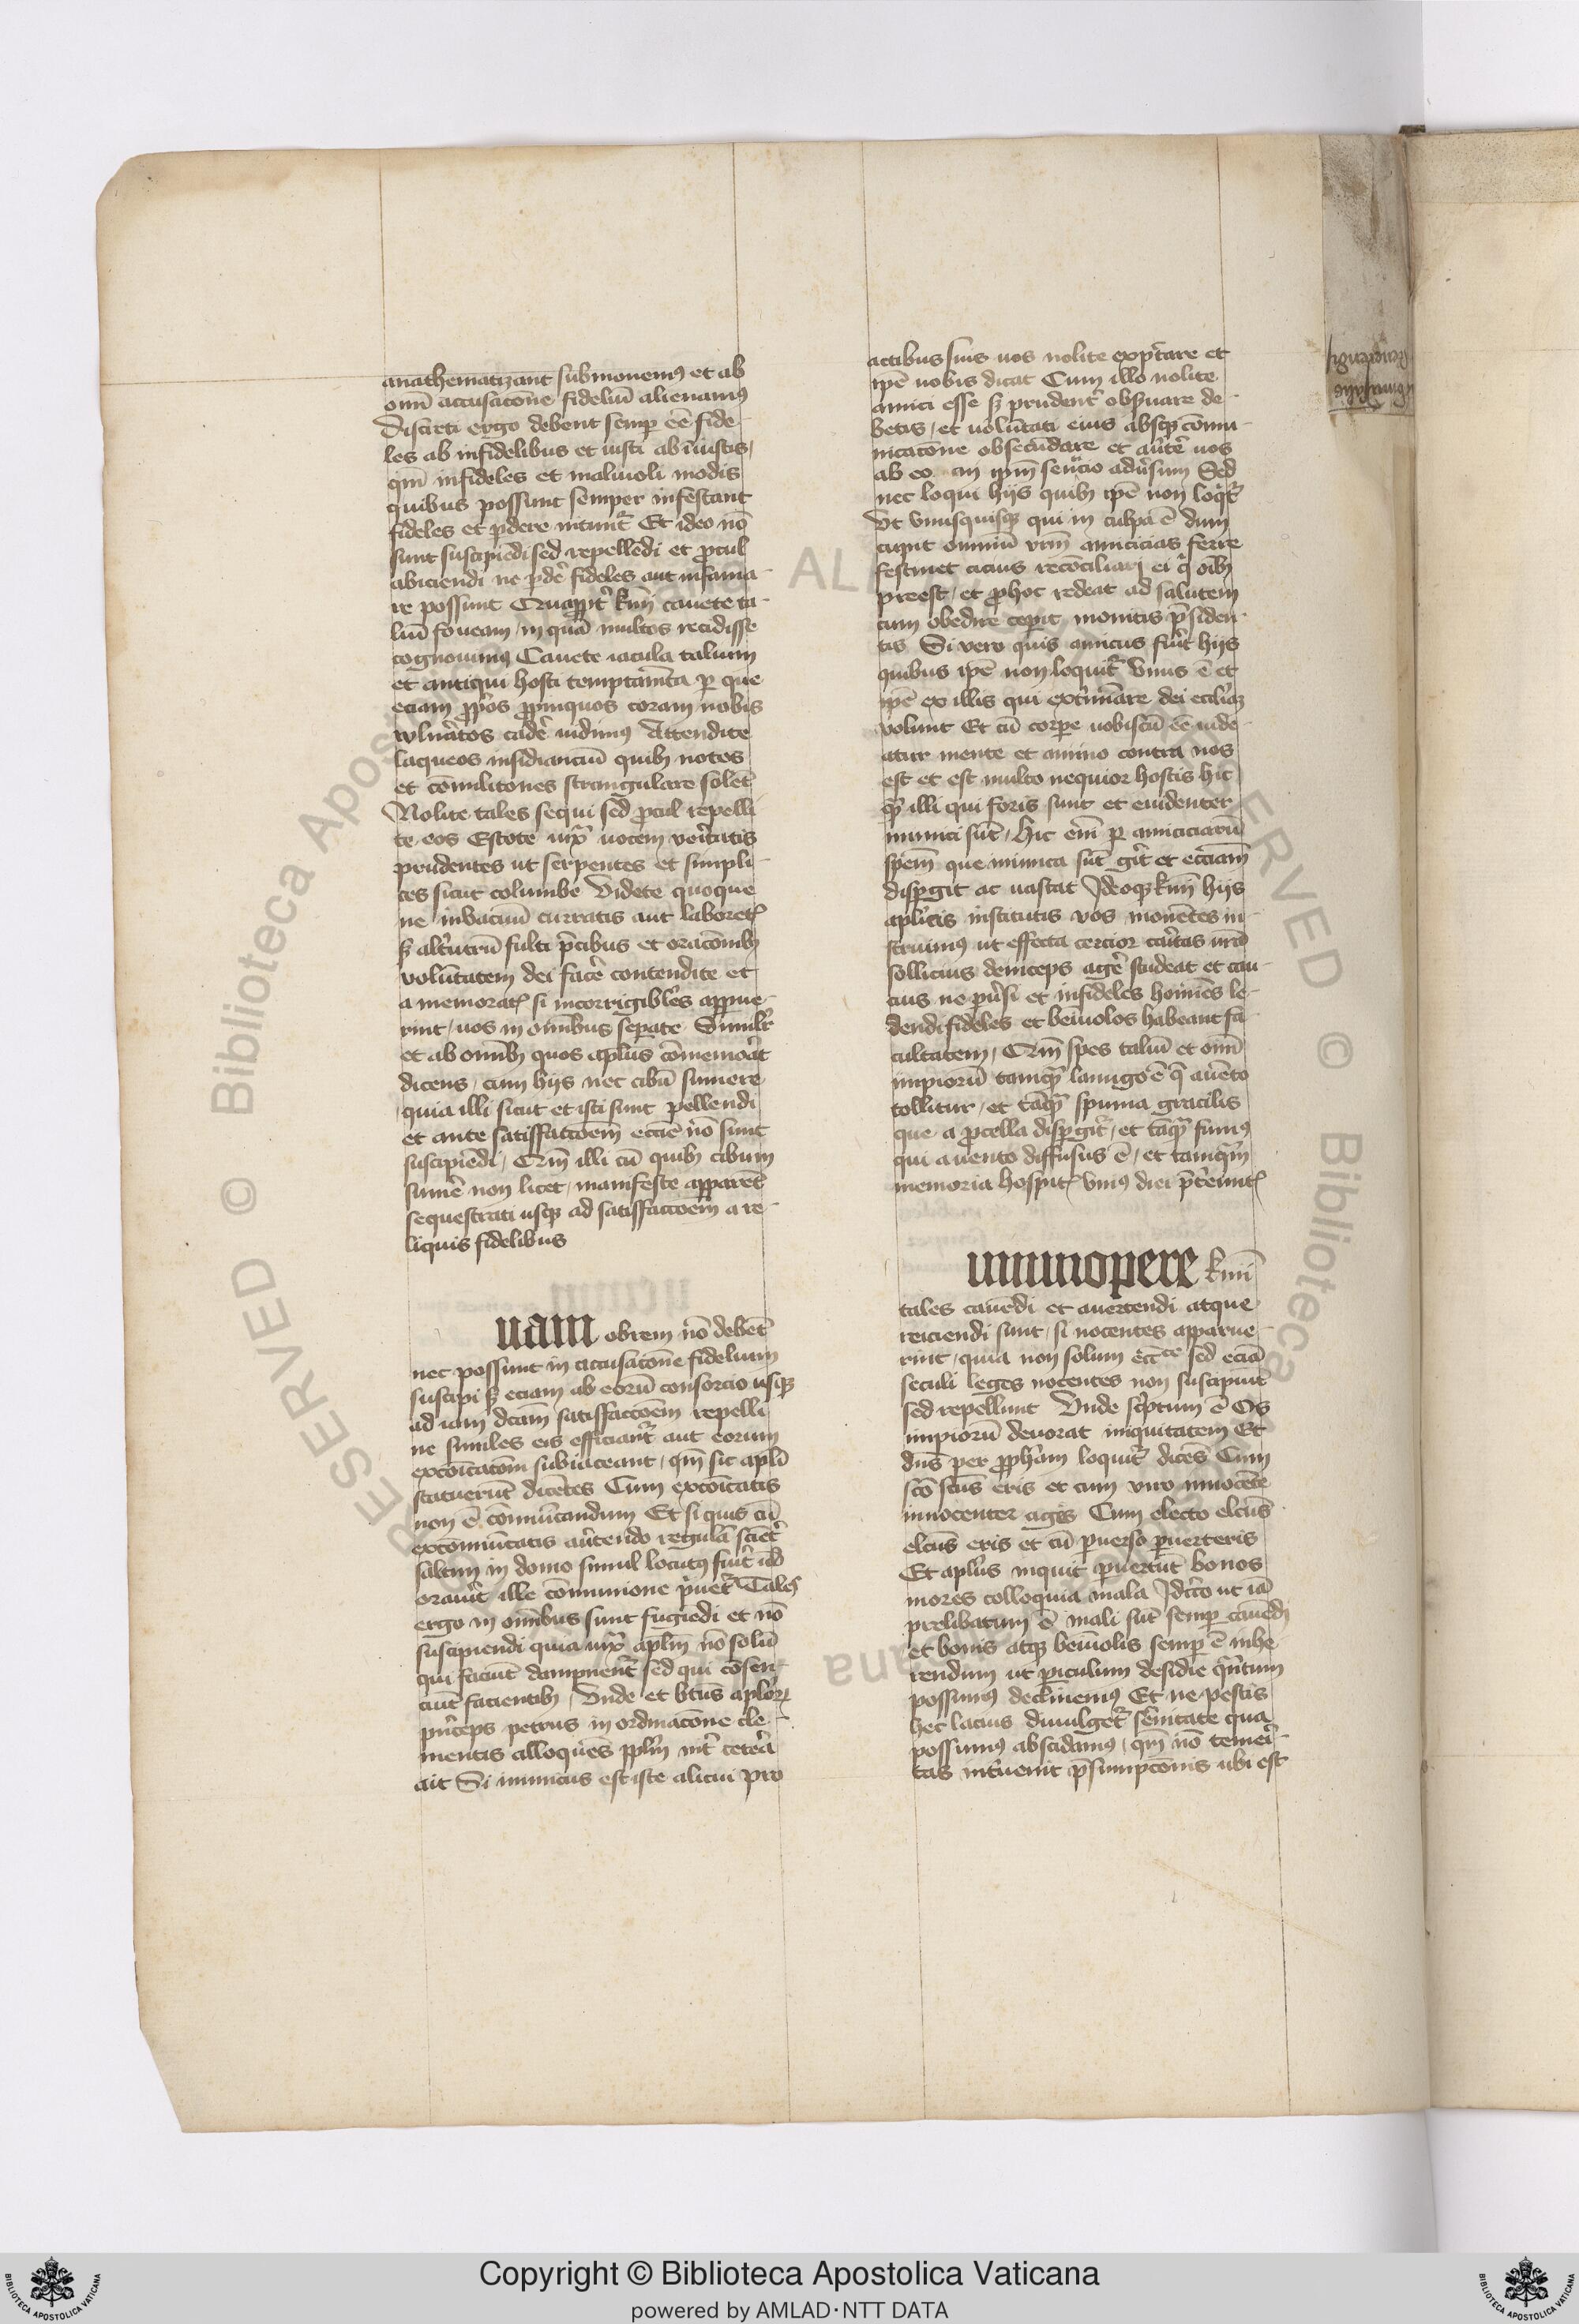 anathematizant submonemus et ab
omī accusacōne fideliū alienamus
Discreti ergo debent semp ēē fide-
les ab infidelibus et iusti ab iniustis,
qm̄ infideles et maliuoli modis
quibus possunt semper infestant
fideles et pdere nitunt̄ Et ideo nō
sunt suscipiēdi sed repellēdi et procul
abiciendi ne pdē fideles aut infama-
re possunt Quapp̄t kmī cauete ta-
liū foueam in quā multos recidisse
cognouimus Cauete iacula talium
et antiqui hosti temptamēta p que
eciam pp̄os ppinquos coram nobis
wlnātos cadē uidimus Attendite
laqueos insidianciū quibꝫ notos
et cōmilitones strangulare solēt
Nolite tales sequi sed procul repelli-
te eos Estote iuxͣ uocem veritatis
prudentes ut serpentes et simpli-
ces sicut columbe Videte quoque
ne inuacuū curratis aut laboretꝭ
sꝫ altutrū fulti p̄cibus et oracōnibꝫ
volūtatem dei facē contendite et
a memoratꝭ si incorrigibiles apparue-
rint, uos in omībus sepate Similr̄
et ab omībꝫ quos aplus cōmemorāt
dicens, cum hijs nec cibū sumere
quia illi sicut et isti sunt pellendi
et ante satisfaccōem ecc̄ie nō sunt
suscipiēdi, Qm̄ illi cū quibꝫ cibum
sumē non licet, manifeste apparēt
sequestrati usqꝫ ad satisfaccōem a re-
liquis fidelibus
uam obrem nō debēt
nec possunt in accusacōne fidelium
suscipi sꝫ eciam ab eorū consorcio usqꝫ
ad iam dc̄am satisfaccōem repelli
ne similes eis efficiant̄ aut eorum
excōīcacōni subiaceant, qm̄ sic apli
statuerūt dicētes Cum excōīcatis
non ē cōmūicandum Et si quis cū
excōmūīcatis auertendo regulā sciēt
saltim in domo simul locutꝰ fuīt uel
orauīt ille cōmunione p̄uet̄ Tales
ergo in omībus sunt fugiēdi et nō
suscipiendi quia iuxͣ aplm̄ nō solū
qui faciūt dampnent̄ sed qui cōsen-
ciūt facientibꝫ, Vnde et btūs aplorꝝ
pūceps petrus in ordinacōne cle-
mentis alloquēs pplm̄ int̄ cetera
ait Si inimicus est iste alicui pro
actibus suis uos nolite expectare et
ipē nobis dicat Cum illo nolite
amici esse sꝫ prudent̄ obsuare de-
betis, et uolūtati eius absqꝫ cōmu-
nicacōne obsecūdare et auertē uos
ab eo an ipm̄ sencio aduersum Sed
nec loqui hijs quibꝫ ipē non loqit̄
Vt vnusquisqꝫ qui in culpa ē dum
cupit omniū vrm̄ amicicias ferre
festinet cicius recōciliari ei qͥ oībꝫ
preest, et p hoc redeat ad salutem
cum obedire ceperit monitis p̄siden-
tis Si vero quis amicus fuīt hijs
quibus ipē non loquit̄ Vnus ē et
ipē ex illis qui extīmare dei eccliāꝫ
volunt Et cū corpe uobiscū ēē uide-
atur mente et animo contra nos
est et est multo nequior hostis hic
qͣ illi qui foris sunt et euidenter
inimici sūt, Hic em̄ p amiciciarū
spem que inimica sūt git̄ et ecc̄iam
dispergit ac uastat Ideoqꝫ kmī hijs
aplicis institutis vos monētes in-
struimus ut effecta cercior caritas urā
sollicius deinceps agē studeat et cau-
cius ne puersi et infideles homīes le-
dendi fideles et beniuolos habeant fa-
cultatem, Qm̄ spes taliū et omī
impiorū tamqͣ lanugo ē qͣ auēto
tollitur, et tāqͣ spuma gracilis
que a pcella dispergit̄, et tāqͣ fumus
qui a uento diffusus ē, et tamqͣ
memoria hospitꝭ vnius diei p̄tereuntꝭ
ummopere kmī
tales cauēdi et auertendi atque
reiciendi sunt, si nocentes apparue-
rint, quia non solum ecc̄ce sed eciā
seculi leges nocentes non suscipiūt
sed repellunt Vnde scptum ē Os
impiorū deuorat iniquitatem Et
dn̄s per pphām loquit̄ dicēs Cum
scō scūs eris et cum viro innocēte
innocenter ages Cum electo elcūs
elcūs eris et cū puerso puerteris
Et aplus inquit puertūt bonos
mores colloquia mala Idc̄co ut iā
prelibatum ē mali sūt semp cauēdi
et bonis atqꝫ beniuolis semp ē inhe-
rendum ut piculum desidie qͣntum
possumus declinemus Et ne pestis
hec lacius diuulget̄ seūitate qua
possumus abscidamus, qm̄ nō temeri-
tas interuenit p̄sumpcōnis ubi est